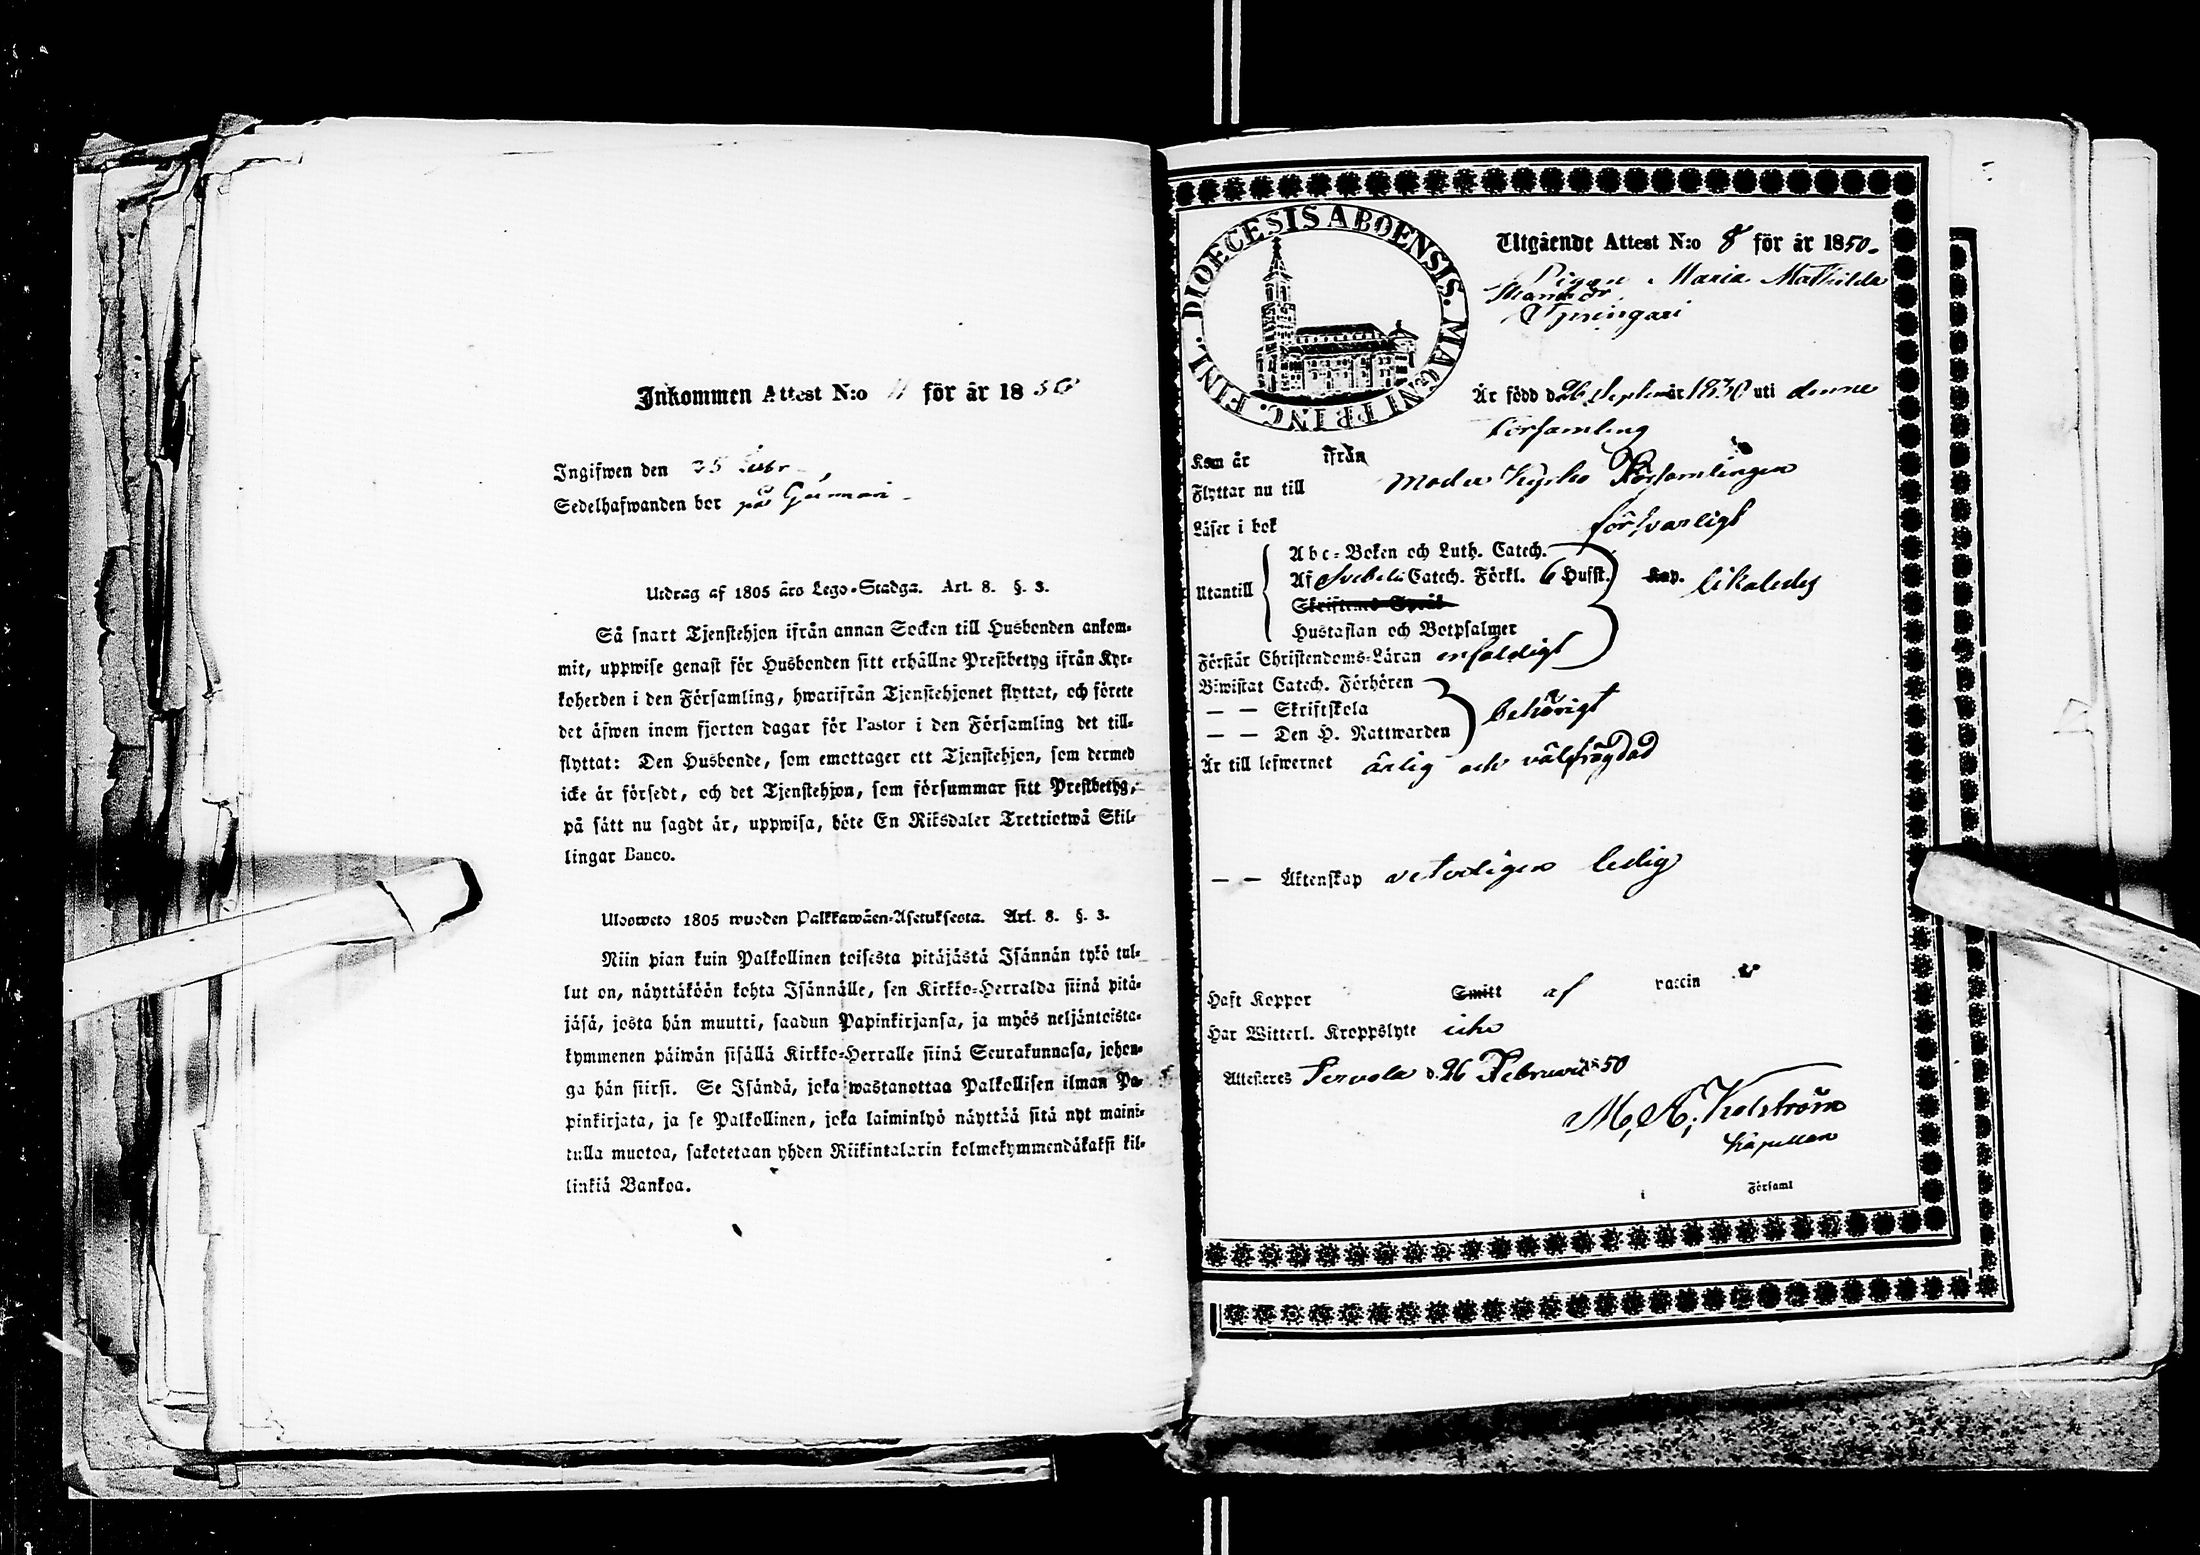 Inkommen Attest N:o 11 för år 1850
Ingifwen den 25
Sedelhafwanden bor på
Utdrag af 1805 års Lego-Stadga. Art. 8. §. 3.
Så snart Tjenstehjon ifrån annan Socken till Husbonden ankom-
mit, uppwise genast för Husbonden sitt erhållne Prestbetyg ifrån Kyr-
koherden i den Församling, hwarifrån Tjenstehjonet flyttat, och förete
det äfwen inom fjorton dagar för Pastor i den Församling det till-
flyttat: Den Husbonde, som emottager ett Tjenstehjon, som dermed
icke är försedt, och det Tjenstehjon, som försummar sitt Prestbetyg,
på sätt nu sagdt är, uppwisa, böte En Riksdaler Trettiotwå Skil-
lingar Banco.
Ulosweto 1805 wuoden Palkkawäen-Asetuksesta. Art. 8. §. 3.
Niin pian kuin Palkollinen toisesta pitäjästä Isännän tykö tul-
lut on, näyttäköön kohta Isännälle, sen Kirkko-Herralda siinä pitä-
jäsä, josta hän muutti, saadun Papinkirjansa, ja myös neljäntoista-
kymmenen päiwän sisällä Kirkko-Herralle siinä Seurakunnasa, johon-
ga hän siirsi. Se Isändä, joka wastanottaa Palkollisen ilman Pa-
pinkirjata, ja se Palkollinen, joka laiminlyö näyttää sitä nyt maini-
tulla muotoa, sakotetaan yhden Riikintalarin kolmekymmendäkaksi kil-
linkiä Bankoa.
DIOECESIS ABOENSIS. MAGNI PRINC. FINL.
Utgående Attest N:o 8 för år 1850.
Pigan Maria Mathilda
Är född d. 26 Septemb. år 1830 uti denne
Församling
Kom år ifrån
Flyttar nu till Moder Kyrko Församlingen
Läser i bok försvarligt
Utantill
Abc-Boken och Luth. Catech.
Af Svebelii Catech. Förkl. 6 Hufst. Kap. likaledes
Skriftenes Språk
Hustaflan och Botpsalmer
Förstår Christendoms-Läran enfaldigt
Biwistat Catech. Förhören
— — Skriftskola behörigt
— — Den H. Nattwarden
Är till lefwernet ärlig och välfrägdad
— — Äktenskap veterligen ledig
Haft Koppor Smitt af vaccin
Har Witterl. Kroppslyte icke
Attesteres Tervola d. 26 Februari 1850
M. A. Holström
Kapellan
Församl